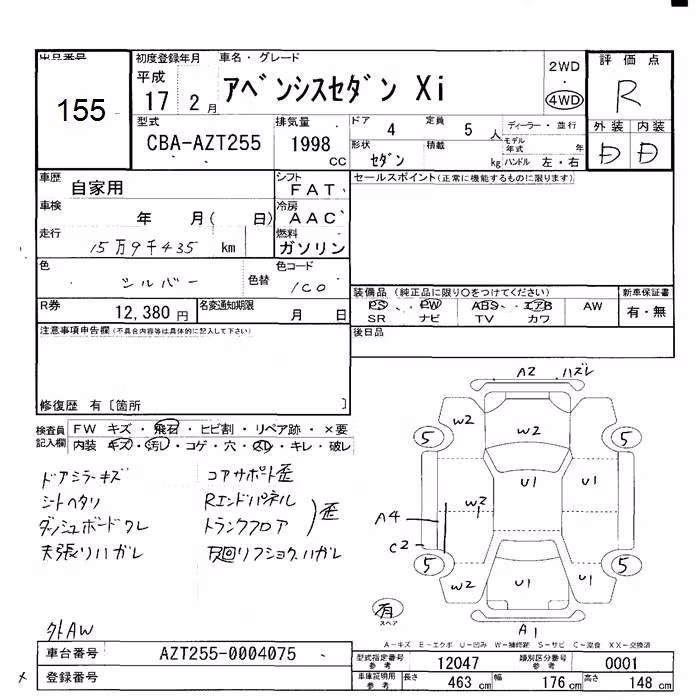 出品番号
155
初度登録年月
平成
17 2 月
車名・グレード
アベンシスセダン Xi
2WD
・
4WD
評価点
R
外装 内装
D D
型式
CBA-AZT255
排気量
1998
cc
ドア 4
定員 5 人
形状 セダン
積載 kg
ディーラー・並行
モデル年式 年
ハンドル 左・右
車歴
自家用
シフト
FAT
車検
年 月( 日)
冷房
AAC
走行
15万9千435 km
燃料
ガソリン
色
シルバー
色替
色コード
1C0
R券
12,380 円
名変通知期限
月 日
セールスポイント(正常に機能するものに限ります)
装備品(純正品に限り○をつけてください)
PS・PW・ABS・エアB AW
SR ナビ TV カワ
新車保証書
有・無
後日品
注意事項申告欄(不具合内容等は具体的に記入して下さい)
修復歴 有〔箇所 〕
検査員記入欄
FW キズ・飛石・ヒビ割・リペア跡・×要
内装 キズ・汚レ・コゲ・穴・スレ・キレ・破レ
ドアミラーキズ
シートヘタリ
ダッシュボードワレ
天張りハガレ
外AW
コアサポート歪
Rエンドパネル
トランクフロア
歪
下回リフショクハガレ
A2 ハズレ
W2
W2
5 5
U1 U1
W2
A4
C2
5 5
W2 U1 U1
有
スペア
A1
A-キズ E-エクボ U-凹み W-補修跡 S-サビ C-腐食 XX-交換済
車台番号
AZT255-0004075
登録番号
型式指定番号
参考
12047
類別区分番号
参考
0001
車庫証明用
参考
長さ 463 cm
幅 176 cm
高さ 148 cm